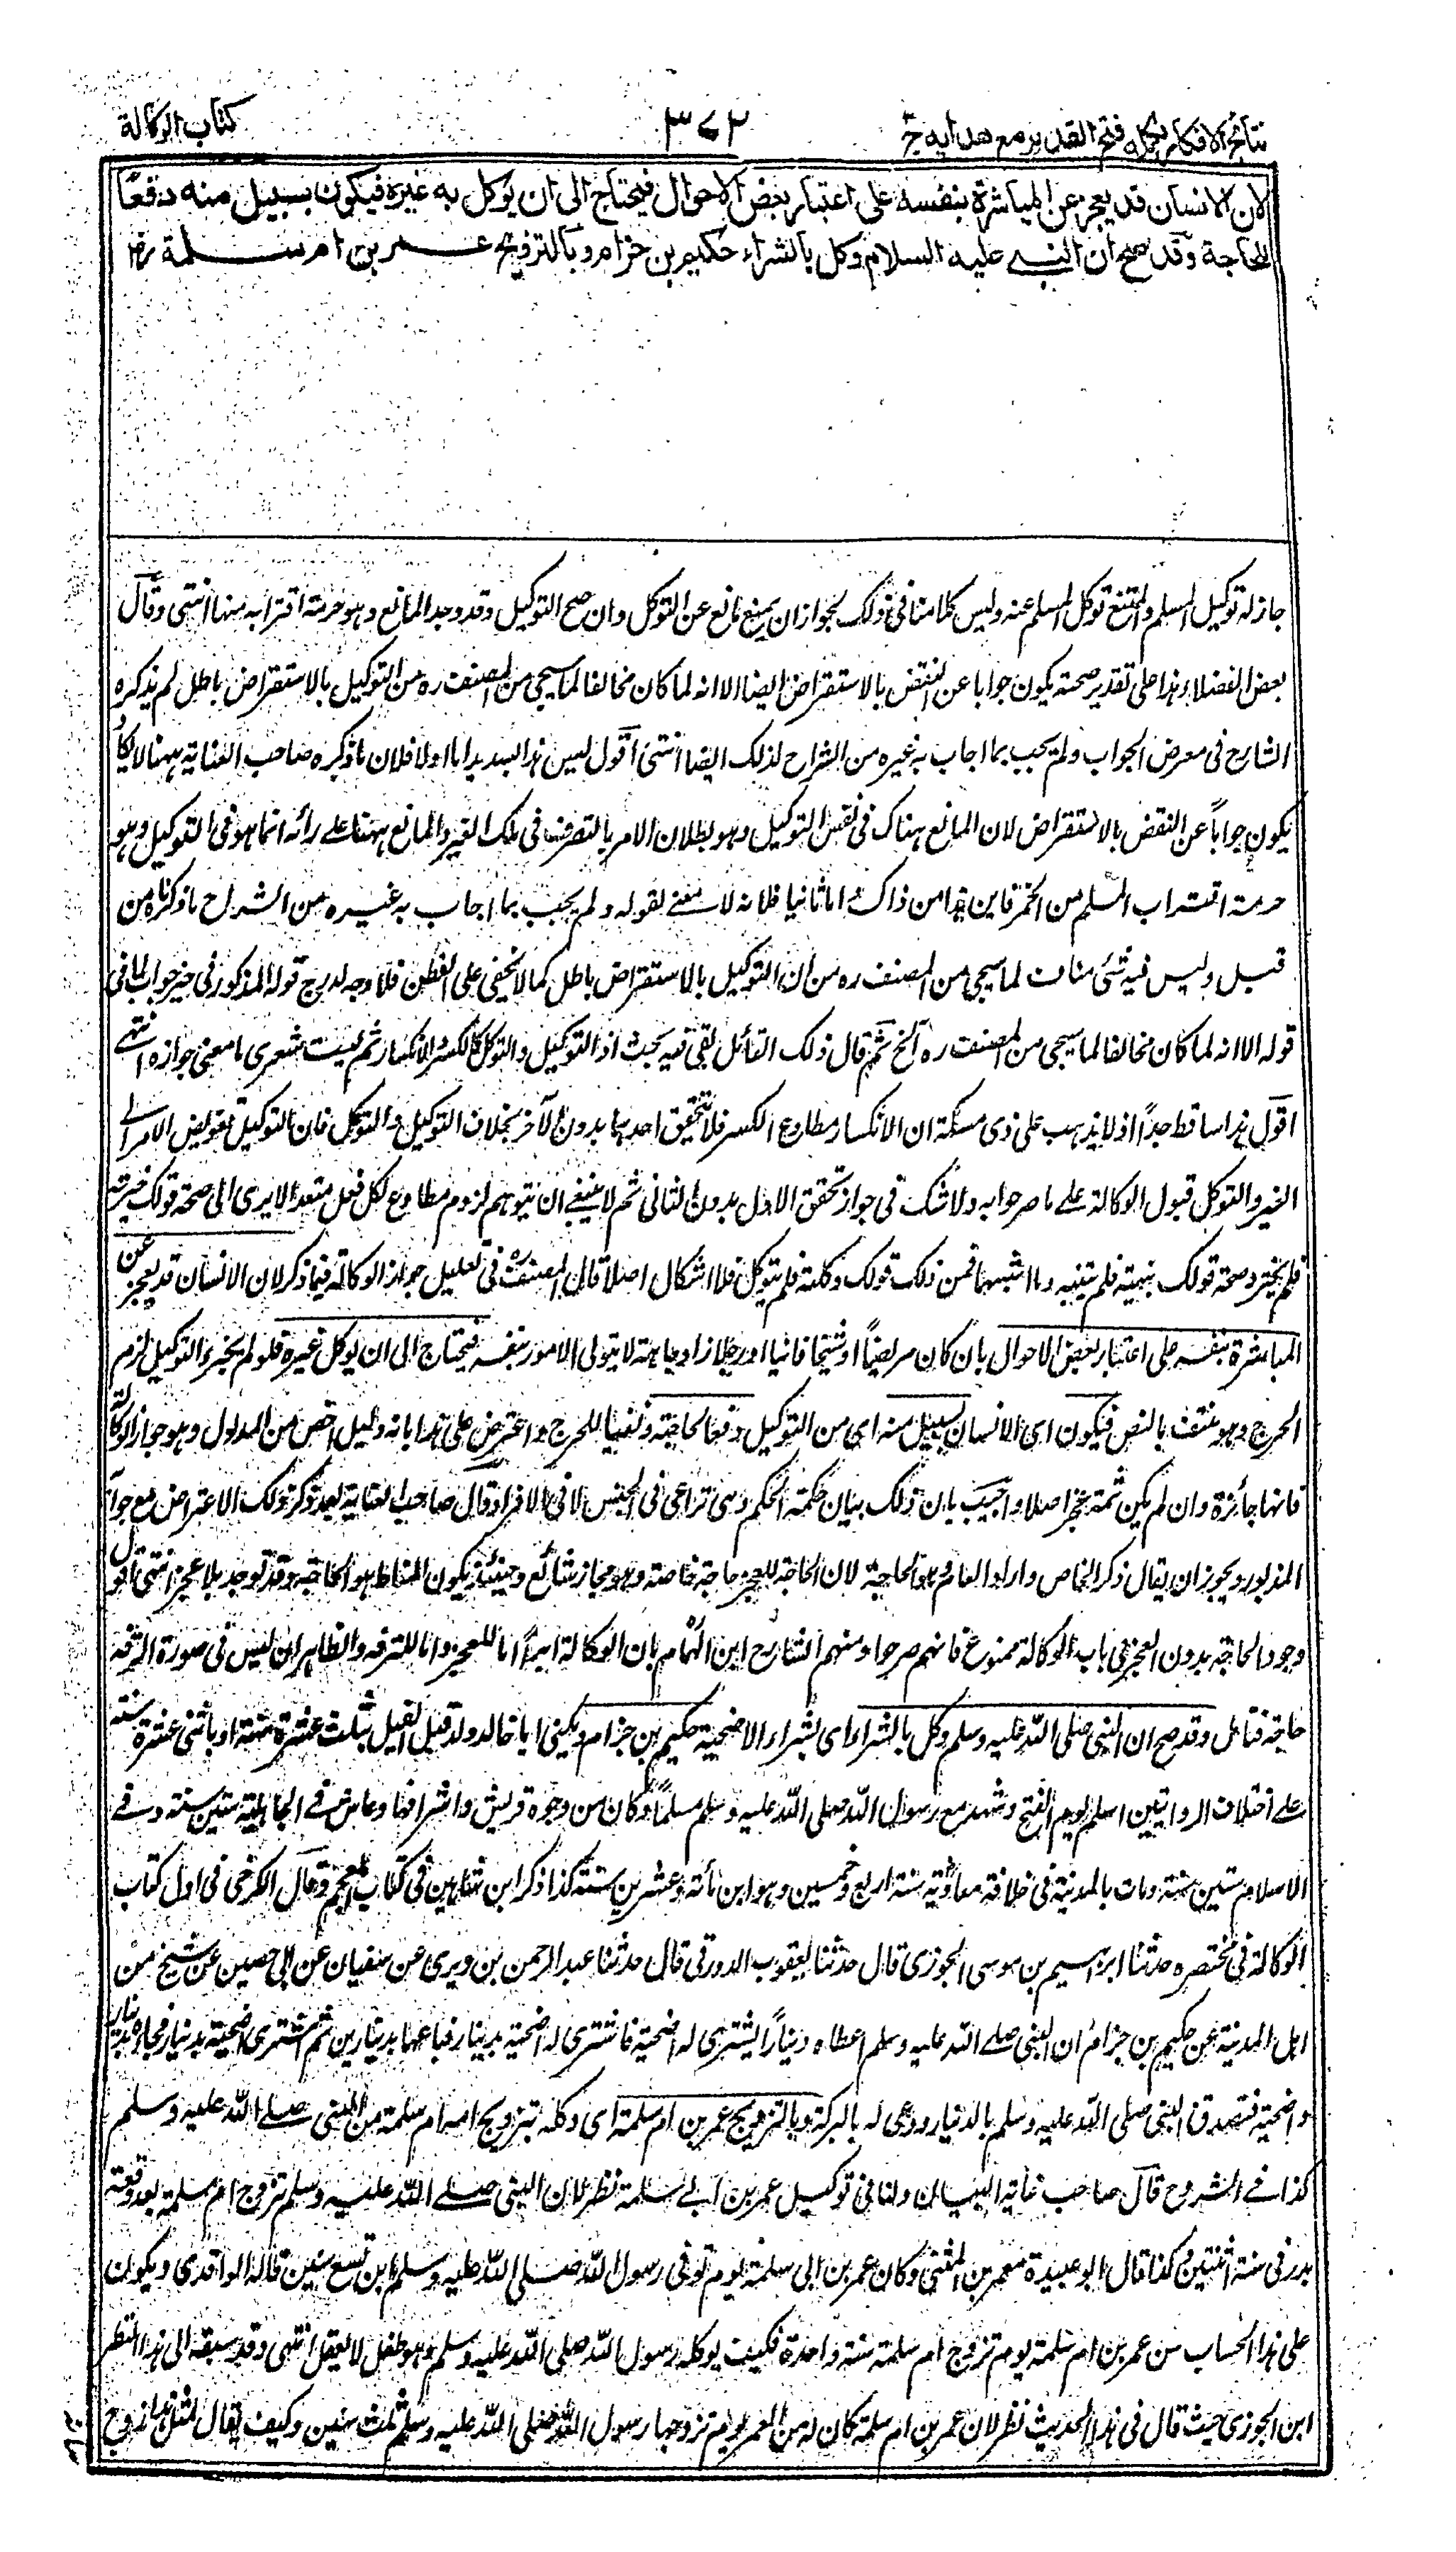 نتائج الافكار تكمله فتح القدير مع هدايه ج
٣٧٢
كتاب الوكالة
لان الانسان قد يعجز عن المباشرة بنفسه على اعتبار بعض الاحوال فيحتاج الى ان يوكل به غيره فيكون بسبيل منه دفعًا
للحاجة وقد صح ان النبي عليه السلام وكل بالشراء حكيم بن حزام وبالتزويج عمر بن ام سلمة رض
جاز له توكيل المسلم وامتنع توكل المسلم عنه وليس كلامنا فى ذلك لجواز ان يمنع مانع عن التوكل وان صح التوكيل وقد وجد المانع وهو حرمة اقترابه منها انتهى وقال
بعض الفضلاء وهذا على تقدير صحته يكون جوابا عن النقض بالاستقراض ايضا الا انه لما كان مخالفا لما سيجى من المصنف ره من التوكيل بالاستقراض باطل لم يذكره
الشارح فى معرض الجواب ولم يجب بما اجاب به غيره من الشراح لذلك ايضا انتهى اقول ليس هذا بسديد اما اولا فلان ما ذكره صاحب العناية ههنا لا يكاد
يكون جواباً عن النقض بالاستقراض لان المانع هناك فى نفس التوكيل وهو بطلان الامر بالتصرف فى ملك الغير والمانع ههنا على رأئه انما هو فى التوكيل وهو
حرمة اقتراب المسلم من الخمر فاين هذا من ذاك اما ثانيا فلانه لا معنى لقوله ولم يجب بما اجاب به غيره من الشراح ما ذكرناه من
قبل وليس فيه شئ مناف لما سيجى من المصنف ره من ان التوكيل بالاستقراض باطل كما لا يخفى على الفطن فلا وجه لدرج قوله المذكور فى حيز جواب لما فى
قوله الا انه لما كان مخالفا لما سيجى من المصنف ره آلخ ثم قال ذلك القائل بقى فيه بحث اذ التوكيل والتوكل كالكسر والانكسار ثم ليت شعرى ما معنى جوازه انتهى
اقول هذا ساقط جداً اذ لا يذهب على ذى مسكة ان الانكسار مطاوع الكسر فلا يتحقق احدهما بدون الآخر بخلاف التوكيل والتوكل فان التوكيل تفويض الامر الى
الغير والتوكل قبول الوكالة على ما صرحوا به ولا شك فى جواز تحقق الاول بدون الثانى ثم لا ينبغى ان يتوهم لزوم مطاوع لكل فعل متعد الا يرى الى صحة قولك خيرته
فلم يختر وصحة قولك نبهته فلم يتنبه وما اشبههما فمن ذلك قولك وكلته فلم يتوكل فلا اشكال اصلا قال المصنف ره فى تعليل جواز الوكالة فيما ذكر لان الانسان قد يعجز عن
المباشرة بنفسه على اعتبار بعض الاحوال بان كان مريضاً او شيخا فانيا او رجلا ذا وجاهة لا يتولى الامور بنفسه فيحتاج الى ان يوكل غيره فلو لم يجز التوكيل لزم
الحرج وهو منتف بالنص فيكون اى الانسان بسبيل منه اى من التوكيل دفعا لحاجته ونفيا للحرج واعترض على هذا بانه دليل اخص من المدلول وهو جواز الوكالة
فانها جائزة وان لم يكن ثمة عجز اصلا واجيب بان ذلك بيان حكمة الحكم وهى تراعى فى الجنس لا فى الافراد وقال صاحب العناية بعد ذكر ذلك الاعتراض مع جوابه
المذكور ويجوز ان يقال ذكر الخاص واراد العام وهو الحاجة لان الحاجة للعجز حاجة خاصة وهو مجاز شائع وحينئذ يكون المناط هو الحاجة وقد توجد بلا عجز انتهى اقول
وجود الحاجة بدون العجز فى باب الوكالة ممنوع فانهم صرحوا ومنهم الشارح ابن الهمام بان الوكالة ابداً اما للعجز واما للترفه والظاهر ان ليس فى صورة الترفه
حاجة فتامل وقد صح ان النبى صلى الله عليه وسلم وكل بالشراء اى بشراء الاضحية حكيم بن حزام ويكنى ابا خالد ولد قبل الفيل بثلث عشرة سنة او باثنى عشرة سنة
على اختلاف الروايتين اسلم يوم الفتح وشهد مع رسول الله صلى الله عليه وسلم مسلماً وكان من وجوه قريش واشرافها وعاش فى الجاهلية ستين سنة وفى
الاسلام ستين سنة ومات بالمدينة فى خلافة معاوية سنة اربع وخمسين وهو ابن مأئة وعشرين سنة كذا ذكر ابن شاهين فى كتاب المعجم وقال الكرخى فى اول كتاب
الوكالة فى مختصره حدثنا ابراهيم بن موسى الجوزى قال حدثنا يعقوب الدورقى قال حدثنا عبد الرحمن بن ويرى عن سفيان عن ابى حصين عن شيخ من
اهل المدينة عن حكيم بن حزام ان النبى صلى الله عليه وسلم اعطاه ديناراً ليشترى له اضحية فاشترى له اضحية بدينار فباعها بدينارين ثم اشترى اضحية بدينار فجاءه بدينار
واضحية فتصدق النبى صلى الله عليه وسلم بالدينار ودعى له بالبركة وبالتزويج عمر بن ام سلمة اى وكله بتزويج امه ام سلمة من النبى صلى الله عليه وسلم
كذا فى الشروح قال صاحب غاية البيان ولنا فى توكيل عمر بن ابى سلمة نظر لان النبى صلى الله عليه وسلم تزوج ام سلمة بعد وقعة
بدر فى سنة اثنتين كذا قال ابو عبيدة معمر بن المثنى وكان عمر بن ابى سلمة يوم توفى رسول الله صلى الله عليه وسلم ابن تسع سنين قاله الواقدى ويكون
على هذا الحساب سن عمر بن ام سلمة يوم تزوج ام سلمة سنة واحدة فكيف يوكله رسول الله صلى الله عليه وسلم وهو طفل لا يعقل انتهى وقد سبقه الى هذا النظر
ابن الجوزى حيث قال فى هذا الحديث نظر لان عمر بن ام سلمة كان له من العمر يوم تزوجها رسول الله صلى الله عليه وسلم ثلث سنين وكيف يقال لمثل هذا زوج